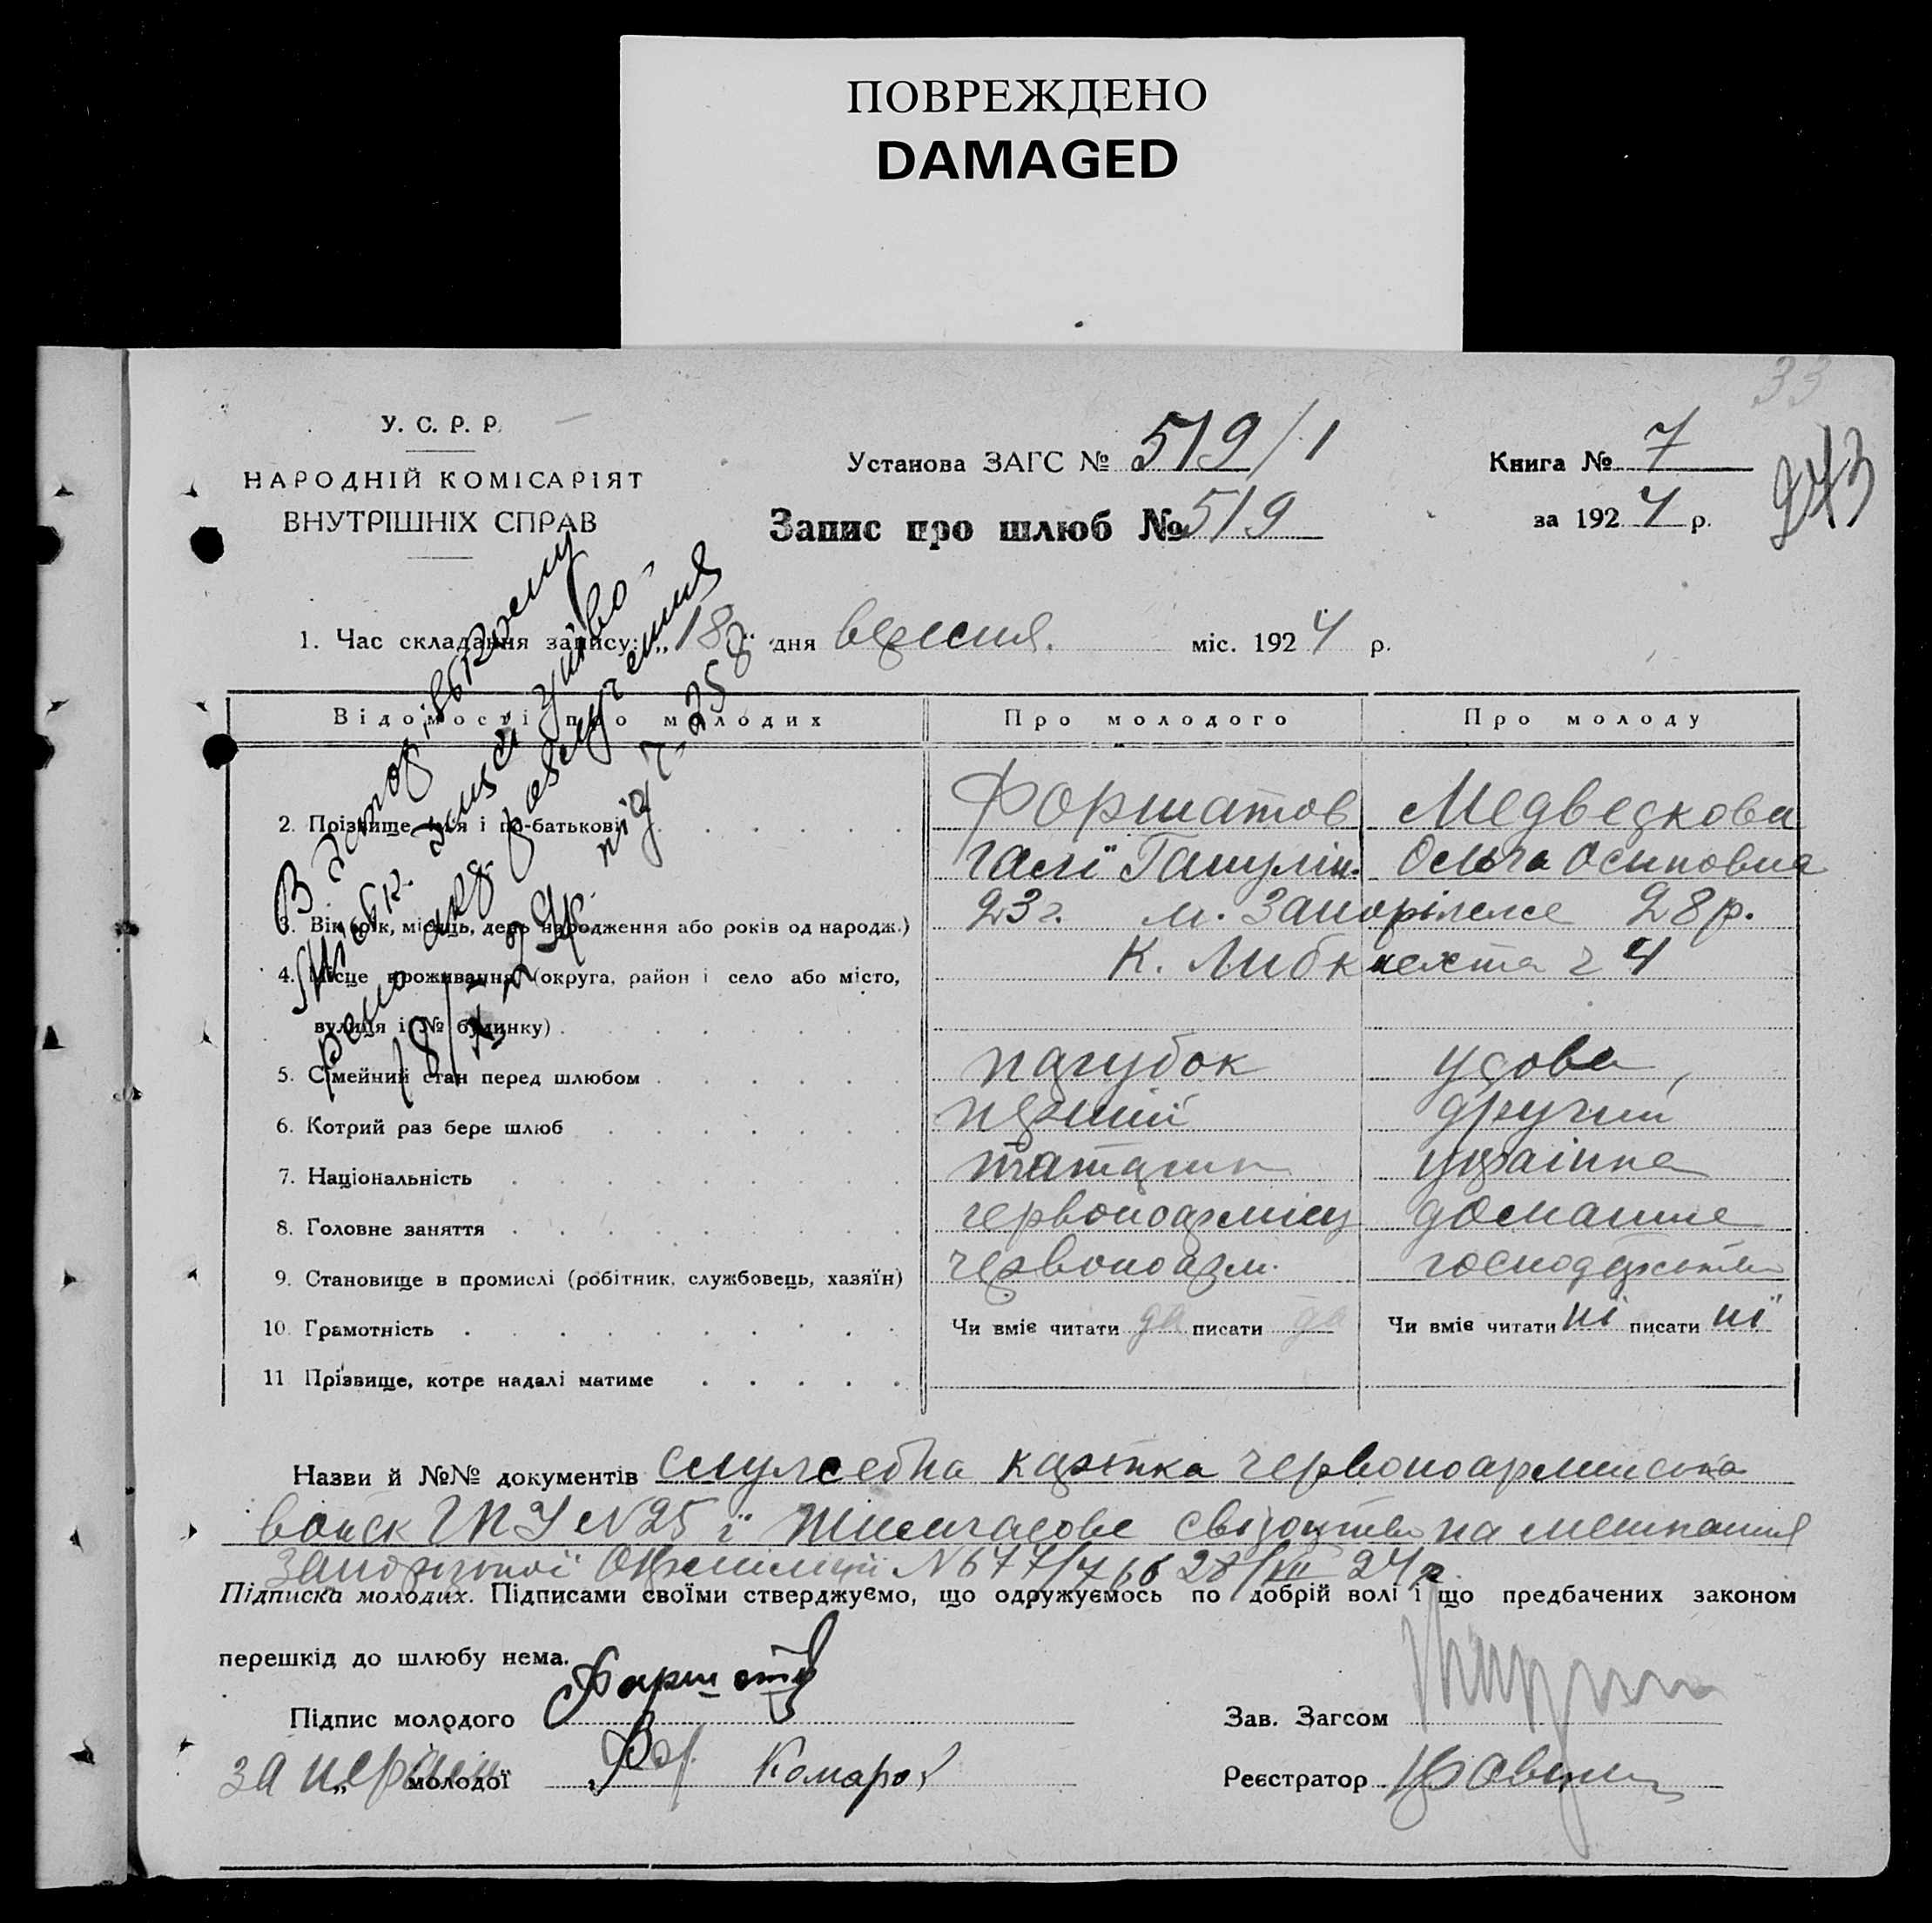 ПОВРЕЖДЕНО
DAMAGED
33
У. С. Р. Р.
НАРОДНІЙ КОМІСАРІЯТ
ВНУТРІШНІХ СПРАВ
Установа ЗАГС № 519/1
Книга № 7
Запис про шлюб № 519
за 1924 р.
243
1. Час складання запису: „18" дня вересня. міс. 1924 р.
Відомості про молодих Про молодого Про молоду
2. Прізвище ім'я і по-батькові Форшатов Медведкова
Ольга Осиповна
3. Вік (рік, місяць, день народження або років од народж.) 23 г. м. Запоріжжє 28 р.
4. Місце проживання (округа, район і село або місто, К. Либкнехта 4
вулиця і № будинку)
5. Сімейний стан перед шлюбом парубок удова
6. Котрий раз бере шлюб перший другий
7. Національність татарин украінка
8. Головне заняття червоноармієц домашнє
9. Становище в промислі (робітник, службовець, хазяїн) червоноарм. господарство
10. Грамотність Чи вміє читати да писати да Чи вміє читати ні писати ні
11. Прізвище, котре надалі матиме
Назви й №№ документів службова картка червоноармійська
войск ГПУ N 25 і тимчасове свідоцтво на мешкання
Запорізької Окрміліції N 677/766 28/VII 24 р.
Підписка молодих. Підписами своїми стверджуємо, що одружуємось по добрій волі і що предбачених законом
перешкід до шлюбу нема.
Підпис молодого Форшатов Зав. Загсом
за неграм. „ молодої Комаров Реєстратор